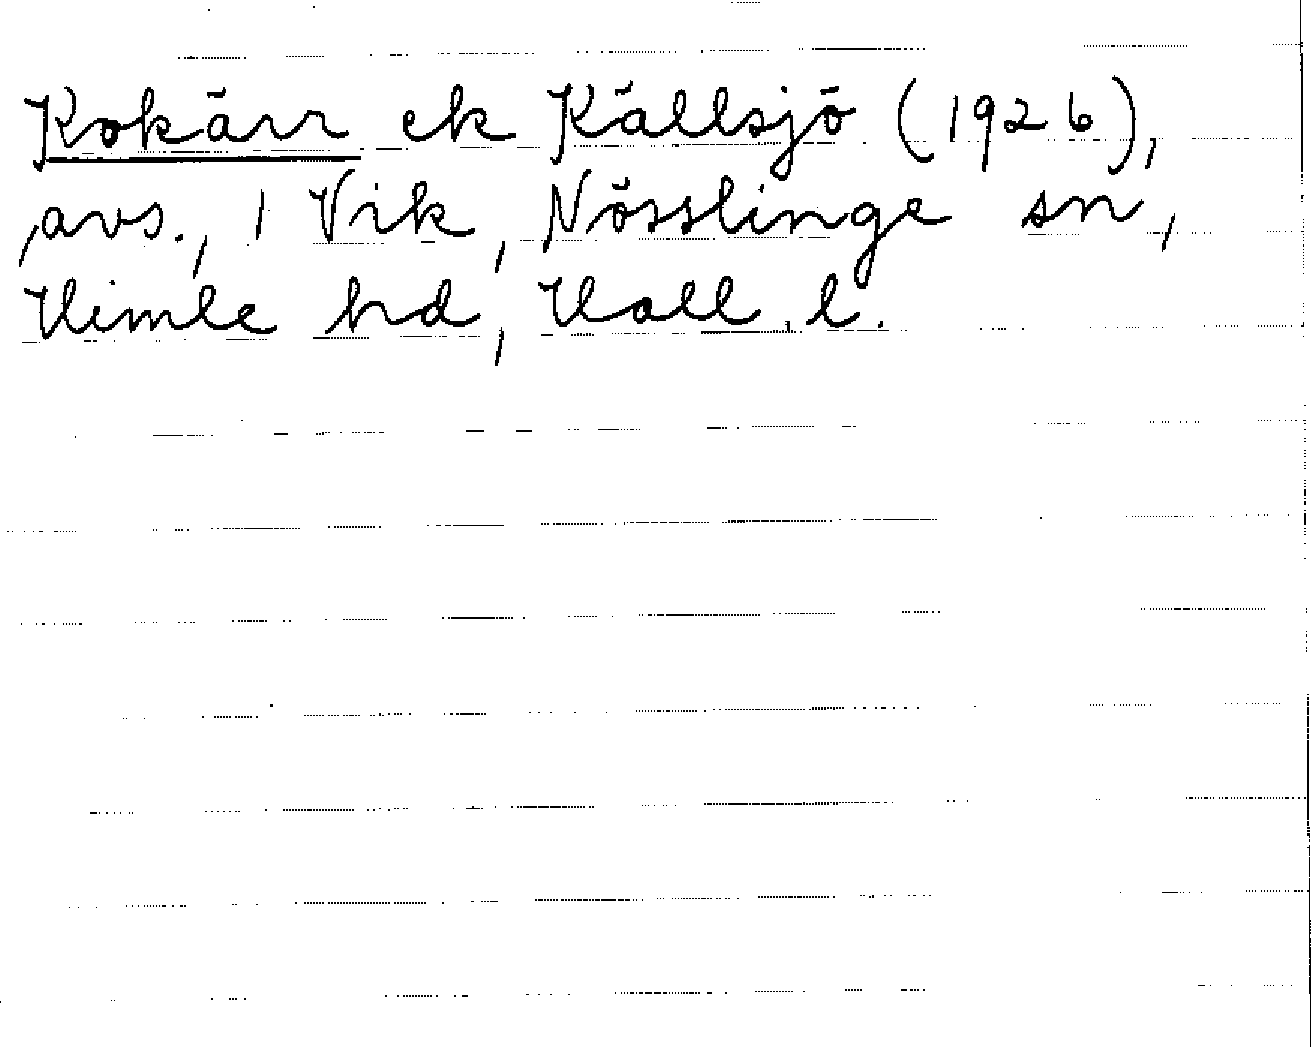 Kokärr ek Källsjö (1926),
avs., 1 Vik, Nösslinge sn,
Himle hd, Hall. l.